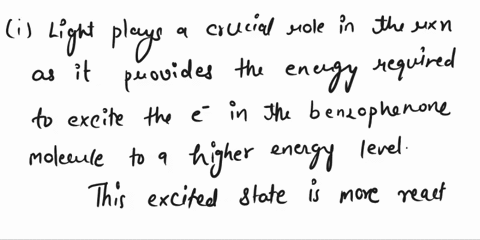 (i) Light plays a crucial role in the rxn
as it provides the energy required
to excite the e⁻ in the benzophenone
molecule to a higher energy level.
This excited state is more react